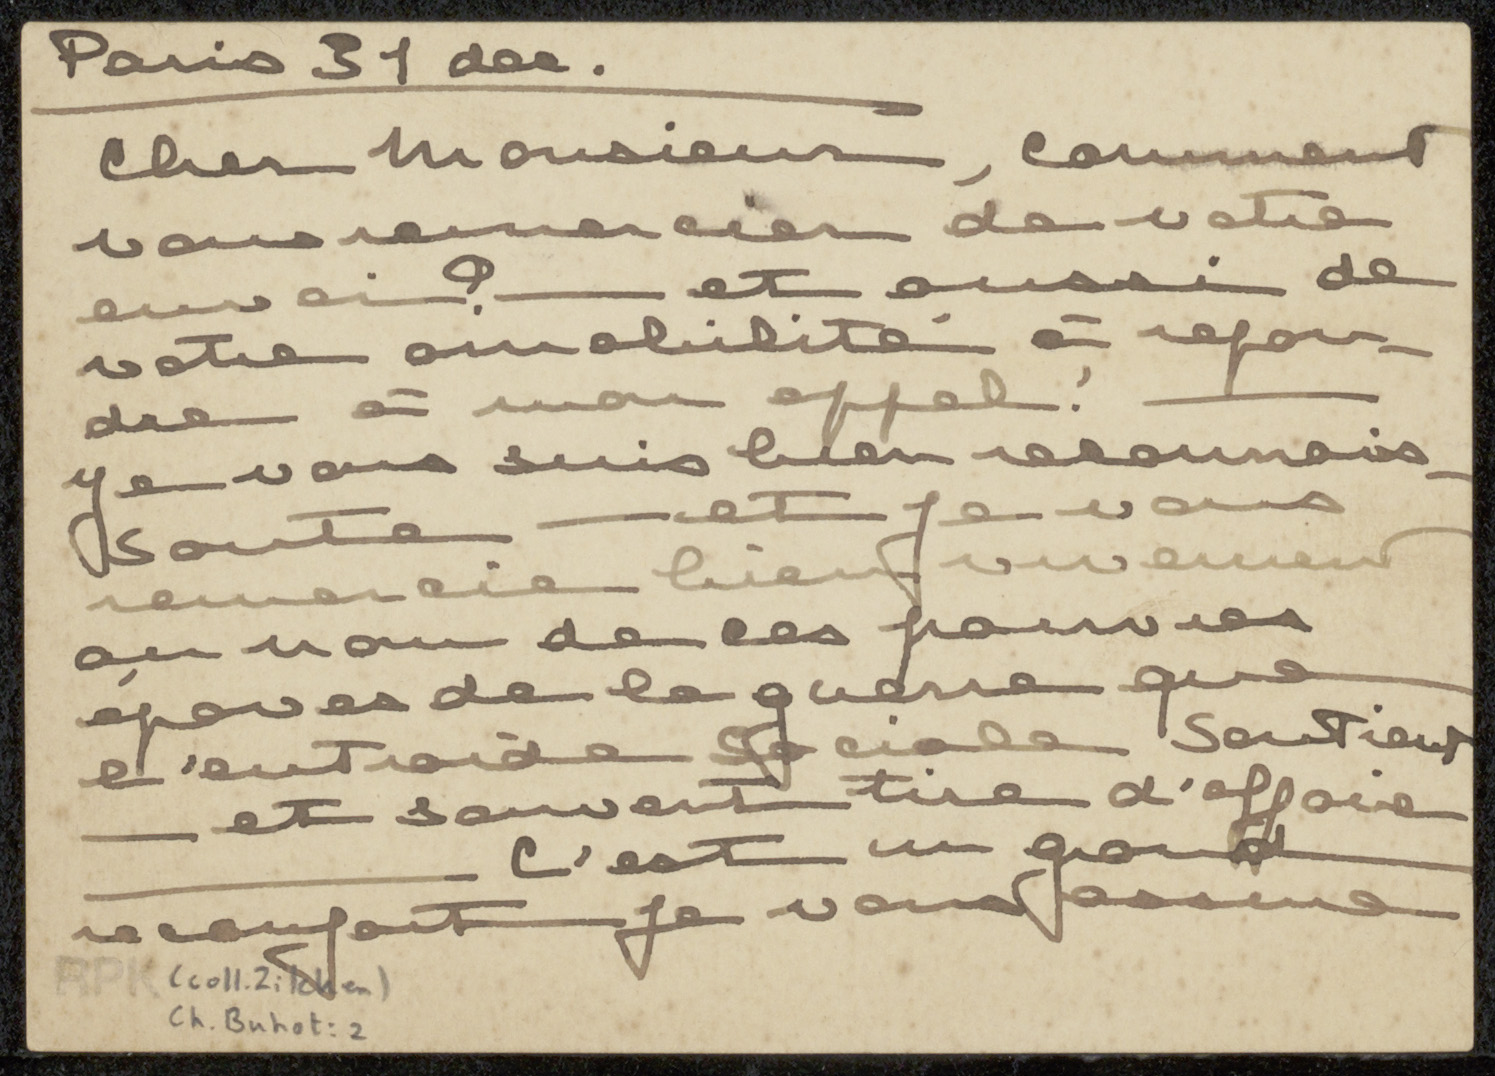 Paris 31 dec.
Cher Monsieur, comment
vous remercier de votre
envoi? — et aussi de
votre amabilité à repon-
dre à mon appel! —
Je vous suis bien reconnais-
sante — et je vous
remercie bien vivement
au nom de ces pauvres
épaves de la guerre que
l'entraide Sociale soutient
— et souvent tire d'affaire
— C'est un grand
reconfort je vous assure
RPK (coll. Zilcken)
Ch. Buhot: 2